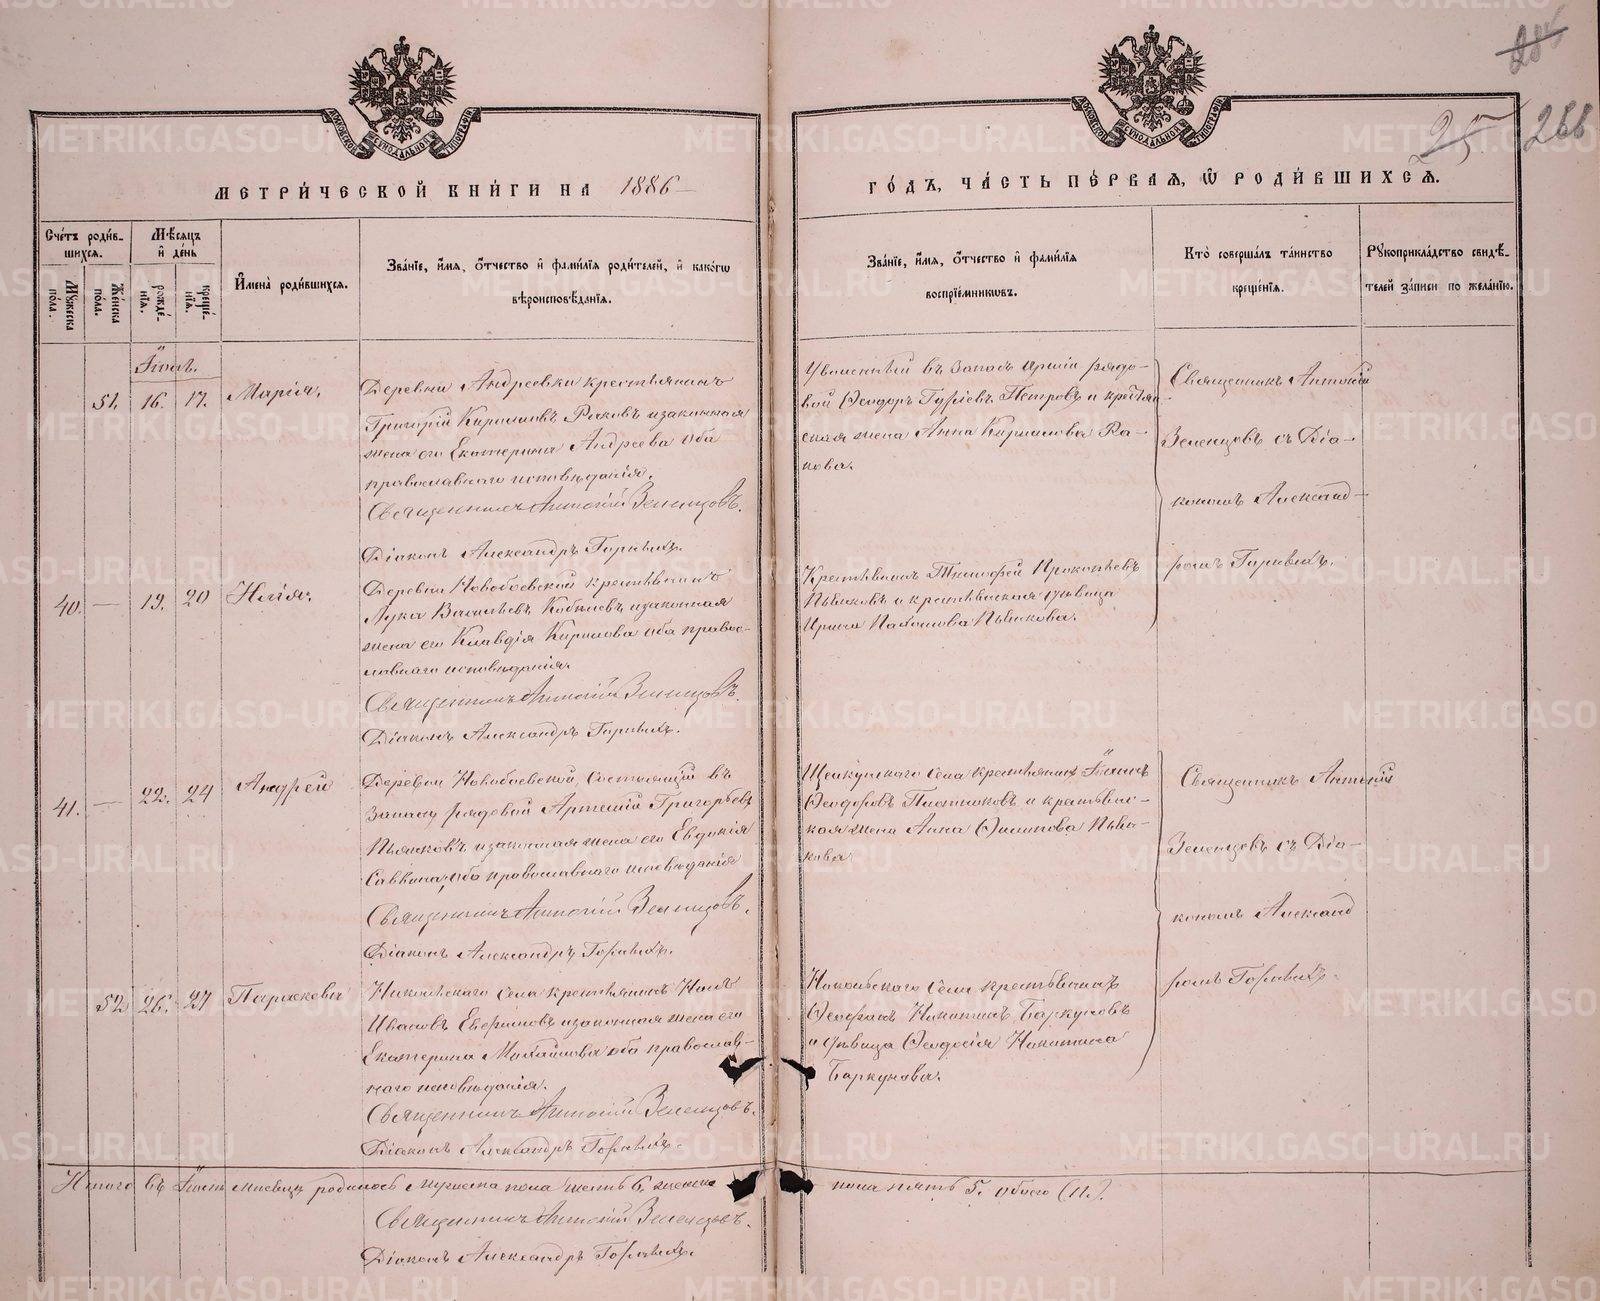 МЕТРИ́ЧЕСКОЙ КНИ́ГИ НА 1886
ГО́ДЪ, ЧА́СТЬ ПЕ́РВАѦ, Ѡ РОДИ́ВШИХСѦ.
25 266
Сче́тъ роди́в-
шихсѧ.
Мѣ́сѧцъ
и҆ де́нь
Мꙋжеска по́ла.
Же́нска по́ла.
рожде́-
нїѧ.
креще́-
нїѧ.
И҆мена̀ роди́вшихсѧ.
Зва́нїе, и҆́мѧ, ѻ҆́тчество и҆ фами́лїѧ роди́телей, и҆ како́гѡ
вѣроисповѣ́данїѧ.
Зва́нїе, и҆́мѧ, ѻ҆́тчество и҆ фами́лїѧ
воспрїе́мникѡвъ.
Кто̀ соверша́лъ та́инство
креще́нїѧ.
Рꙋкоприкла́дство свидѣ́-
телей за́писи по жела́нїю.
Іюль.
51. 16. 17. Марія.
Деревни Андреевки крестьянинъ
Григорій Кириловъ Раковъ и законная
жена его Екатерина Андреева оба
православнаго исповѣданія.
Священникъ Антоній Зеленцовъ.
Діаконъ Александръ Горныхъ.
Уволенный въ запасъ арміи рядо-
вой Ѳеодоръ Гуріевъ Петровъ и крестьян-
ская жена Анна Кирилова Ра-
кова.
Священникъ Антоній
Зеленцовъ съ Діа-
кономъ Александ-
ромъ Горныхъ.
40. — 19. 20 Илія.
Деревни Новобоевской крестьянинъ
Лука Васильевъ Кобелевъ и законная
жена его Клавдія Кирилова оба право-
славнаго исповѣданія.
Священникъ Антоній Зеленцовъ.
Діаконъ Александръ Горныхъ.
Крестьянинъ Тимофей Прокопьевъ
Пьянковъ и крестьянская дѣвица
Ирина Пьянкова.
41. — 22. 24 Андрей
Деревни Новобоевской, состоящій въ
запасѣ рядовой Артемій Григорьевъ
Пьянковъ и законная жена его Евдокія
Саввина, оба православнаго исповѣданія
Священникъ Антоній Зеленцовъ.
Діаконъ Александръ Горныхъ.
Села крестьянинъ Іоаннъ
Ѳеодоровъ Плотниковъ и крестьянс-
кая жена Анна Филипова Пьян-
кова.
Священникъ Антоній
Зеленцовъ съ Діа-
кономъ Александ
ромъ Горныхъ.
52 26. 27 Параскева
Никольскаго Села крестьянинъ
Ивановъ и законная жена его
Екатерина Михайлова оба православ-
наго исповѣданія.
Священникъ Антоній Зеленцовъ.
Діаконъ Александръ Горныхъ.
Никольскаго Села крестьянинъ
Никитинъ Баркуновъ
и дѣвица Ѳеодосія Никитина
Баркунова.
Итого въ Іюлѣ мѣсяцѣ родилось мужеска пола шесть 6, женска
пола пять 5. обоего (11).
Священникъ Антоній Зеленцовъ.
Діаконъ Александръ Горныхъ.
METRIKI.GASO-URAL.RU